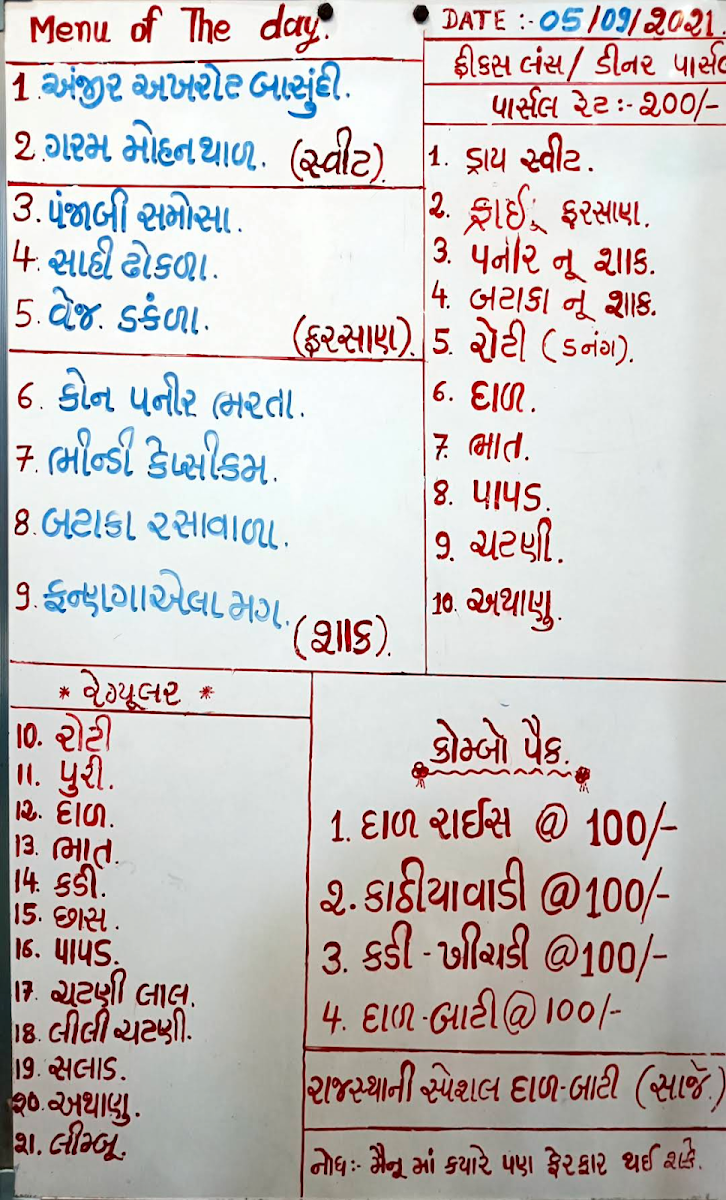 Menu of The day.
1. અંજીર અખરોટ બાસુંદી.
2. ગરમ મોહનથાળ. (સ્વીટ)
3. પંજાબી સમોસા.
4. સાહી ઢોકળા.
5. વેજ. ડકંળા.
(ફરસાણ).
6. કોન પનીર ભરતા.
7. ભીન્ડી કેપ્સીકમ.
8. બટાકા રસાવાળા.
9. ફન્ણગાએલા મગ.
(શાક).
DATE :- 05/09/2021.
ફીકસ લંસ / ડીનર પાર્સલ
પાર્સલ રેટ :- 200/-
1. ડ્રાય સ્વીટ.
2. ફ્રાઈ ફરસાણ.
3. પનીર નૂ શાક.
4. બટાકા નૂ શાક.
5. રોટી (ડનંગ).
6. દાળ.
7. ભાત.
8. પાપડ.
9. ચટણી.
10. અથાણુ.
* રેગ્યૂલર *
10. રોટી
11. પુરી.
12. દાળ.
13. ભાત.
14. કડી.
15. છાસ.
16. પાપડ.
17. ચટણી લાલ.
18. લીલી ચટણી.
19. સલાડ.
૨0. અથાણુ.
૨1. લીમ્બૂ.
કોમ્બો પૈક.
1. દાળ રાઈસ @ 100/-
૨. કાઠીયાવાડી @ 100/-
3. કડી - ખીચડી @ 100/-
4. દાળ - બાટી @ 100/-
રાજસ્થાની સ્પેશલ દાળ-બાટી (સાજેં)
નોધ :- મૈનૂ માં કયારે પણ ફેરફાર થઈ શકે.